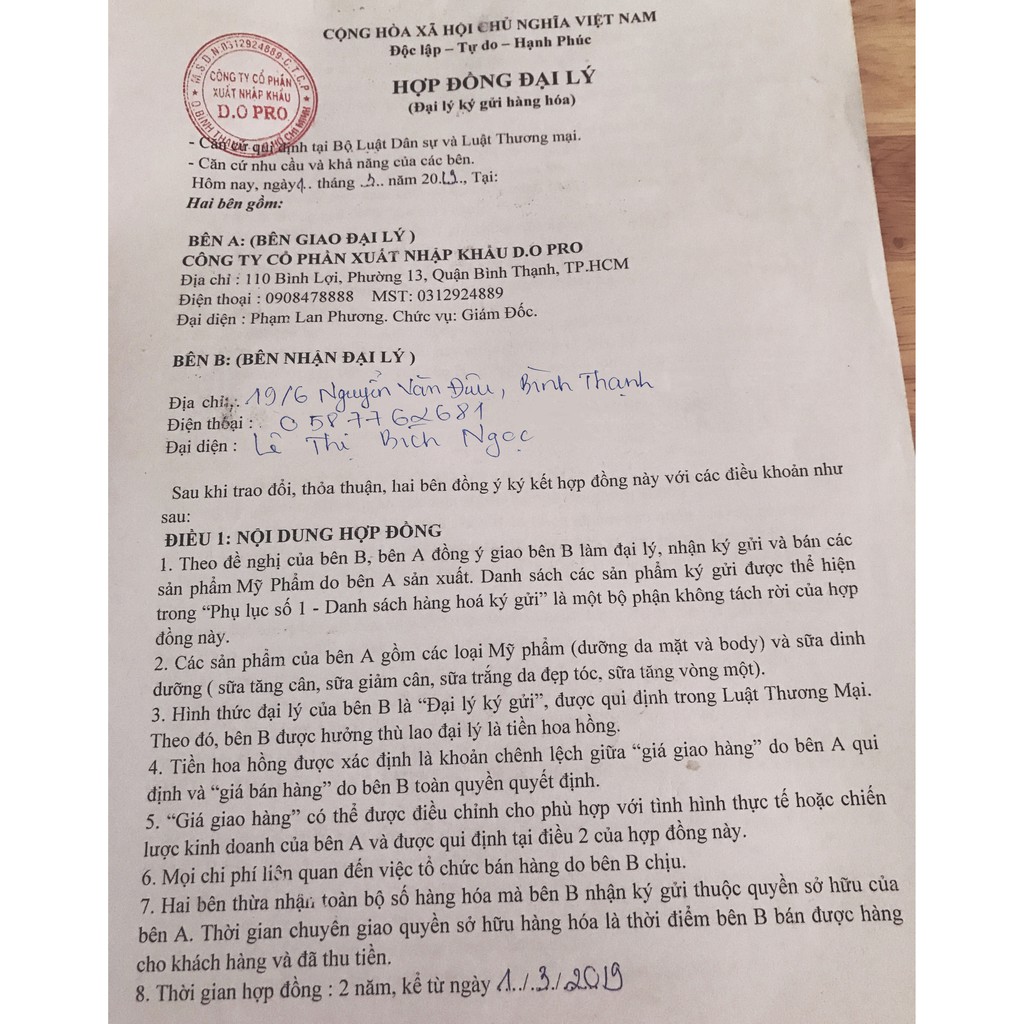 CỘNG HÒA XÃ HỘI CHỦ NGHĨA VIỆT NAM
Độc lập – Tự do – Hạnh Phúc
M.S.D.N:0312924889-C.T.C.P
CÔNG TY CỔ PHẦN
XUẤT NHẬP KHẨU
D.O PRO
HỢP ĐỒNG ĐẠI LÝ
(Đại lý ký gửi hàng hóa)
- Căn cứ qui định tại Bộ Luật Dân sự và Luật Thương mại.
- Căn cứ nhu cầu và khả năng của các bên.
Hôm nay, ngày 1.. tháng .3.. năm 2019., Tại:
Hai bên gồm:
BÊN A: (BÊN GIAO ĐẠI LÝ )
CÔNG TY CỔ PHẦN XUẤT NHẬP KHẨU D.O PRO
Địa chỉ : 110 Bình Lợi, Phường 13, Quận Bình Thạnh, TP.HCM
Điện thoại : 0908478888 MST: 0312924889
Đại diện : Phạm Lan Phương. Chức vụ: Giám Đốc.
BÊN B: (BÊN NHẬN ĐẠI LÝ )
Địa chỉ: 19/6 Nguyễn Văn Đậu, Bình Thạnh
Điện thoại : 0587762681
Đại diện : Lê Thị Bích Ngọc
Sau khi trao đổi, thỏa thuận, hai bên đồng ý ký kết hợp đồng này với các điều khoản như
sau:
ĐIỀU 1: NỘI DUNG HỢP ĐỒNG
1. Theo đề nghị của bên B, bên A đồng ý giao bên B làm đại lý, nhận ký gửi và bán các
sản phẩm Mỹ Phẩm do bên A sản xuất. Danh sách các sản phẩm ký gửi được thể hiện
trong “Phụ lục số 1 - Danh sách hàng hoá ký gửi” là một bộ phận không tách rời của hợp
đồng này.
2. Các sản phẩm của bên A gồm các loại Mỹ phẩm (dưỡng da mặt và body) và sữa dinh
dưỡng ( sữa tăng cân, sữa giảm cân, sữa trắng da đẹp tóc, sữa tăng vòng một).
3. Hình thức đại lý của bên B là “Đại lý ký gửi”, được qui định trong Luật Thương Mại.
Theo đó, bên B được hưởng thù lao đại lý là tiền hoa hồng.
4. Tiền hoa hồng được xác định là khoản chênh lệch giữa “giá giao hàng” do bên A qui
định và “giá bán hàng” do bên B toàn quyền quyết định.
5. “Giá giao hàng” có thể được điều chỉnh cho phù hợp với tình hình thực tế hoặc chiến
lược kinh doanh của bên A và được qui định tại điều 2 của hợp đồng này.
6. Mọi chi phí liên quan đến việc tổ chức bán hàng do bên B chịu.
7. Hai bên thừa nhận toàn bộ số hàng hóa mà bên B nhận ký gửi thuộc quyền sở hữu của
bên A. Thời gian chuyển giao quyền sở hữu hàng hóa là thời điểm bên B bán được hàng
cho khách hàng và đã thu tiền.
8. Thời gian hợp đồng : 2 năm, kể từ ngày 1../.3./2019